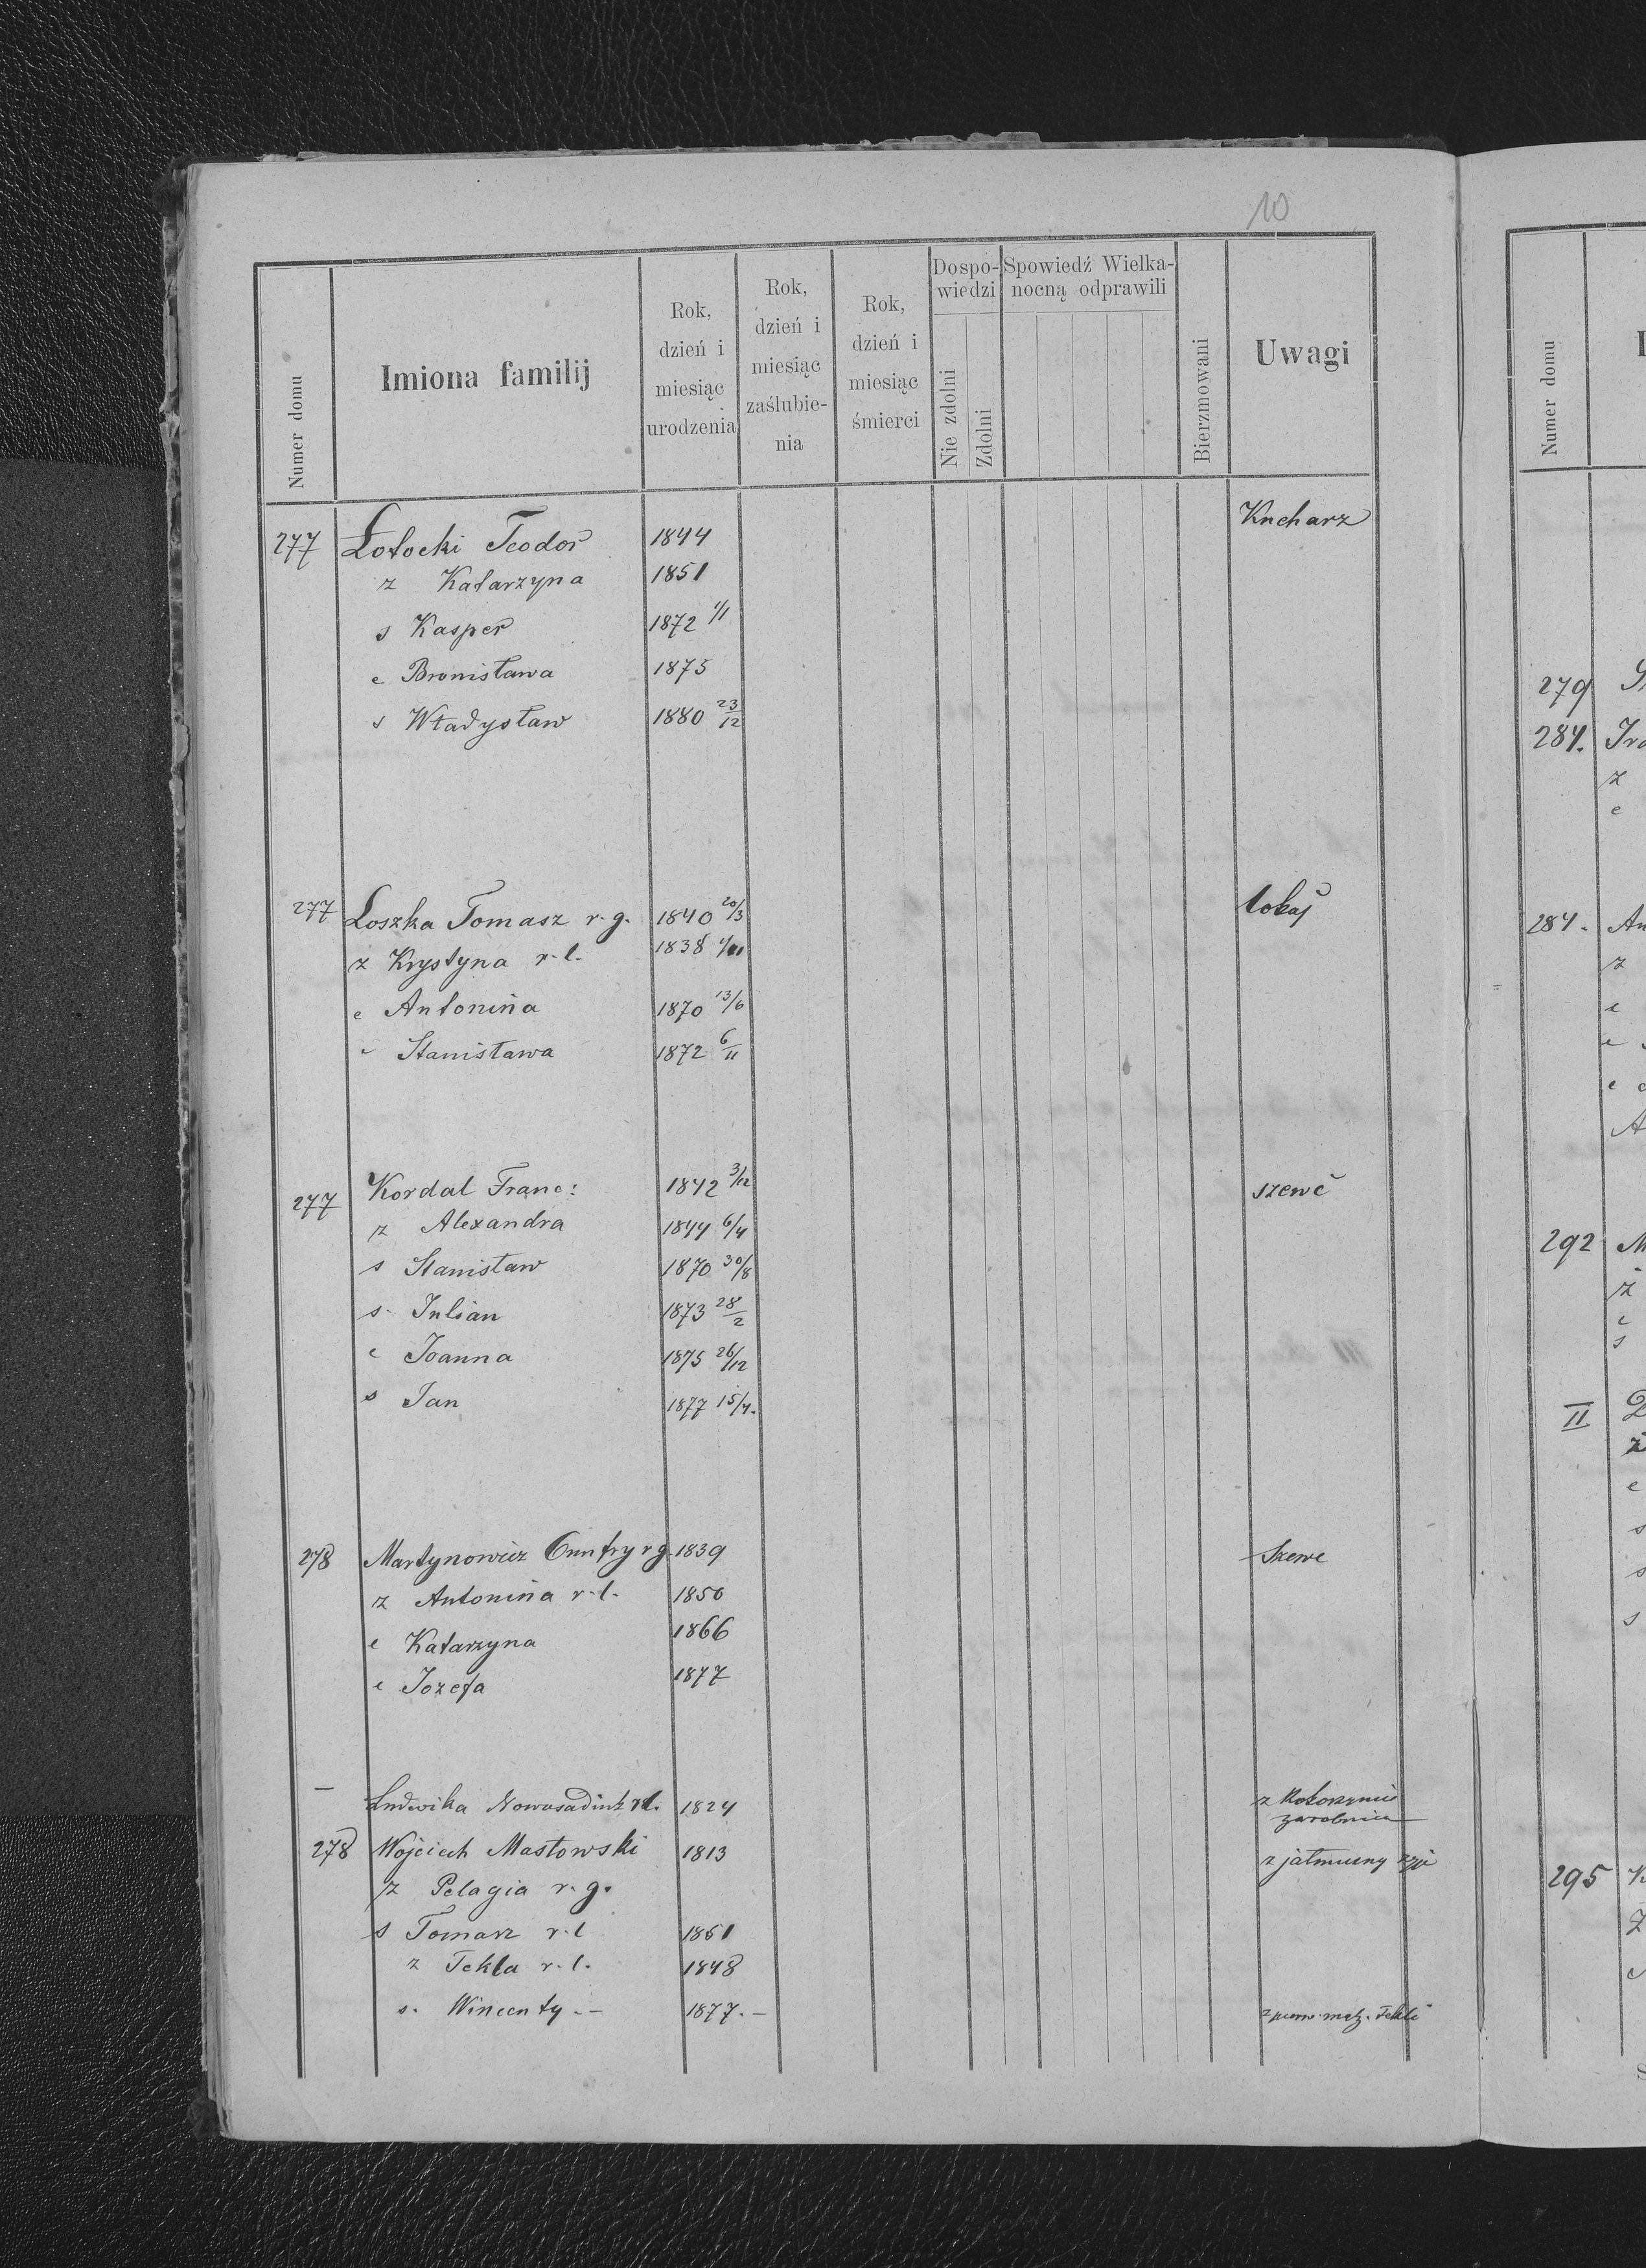 10
Numer domu
Imiona familij
Rok, dzień i miesiąc urodzenia
Rok, dzień i miesiąc zaślubienia
Rok, dzień i miesiąc śmierci
Do spowiedzi
Nie zdolni
Zdolni
Spowiedź Wielkanocną odprawili
Bierzmowani
Uwagi
277 Łotocki Teodor 1844 Kucharz
z Katarzyna 1851
s Kasper 1872 1/1
c Bronisława 1875
s Władysław 1880 23/12
277 Loszka Tomasz r. g. 1840 20/3 lokaj
z Krystyna r. l. 1838
c Antonina 1870 13/6
c Stanisława 1872 6/11
277 Kordal Franc: 1842 3/12 szewc
z Alexandra 1844 6/4
s Stanisław 1870 30/8
s. Julian 1873 28/2
c Joanna 1875 26/12
s Jan 1877 15/4.
278 Martynowicz Onufry r g. 1839 Szewc
z Antonina r. l. 1850
c Katarzyna 1866
c Jozefa 1877
— Ludwika r l. 1824 z
zarobnica
278 Wojciech Masłowski 1813 z jałmużny żyje
z Pelagia r. g.
s Tomasz r. l 1851
z Tekla r. l. 1848
s. Wincenty - - 1877. -
Tekli
Numer domu
279
284.
z
c
284. An
z
c
c
c
292 M
z
c
s
II
z
c
s
s
s
295